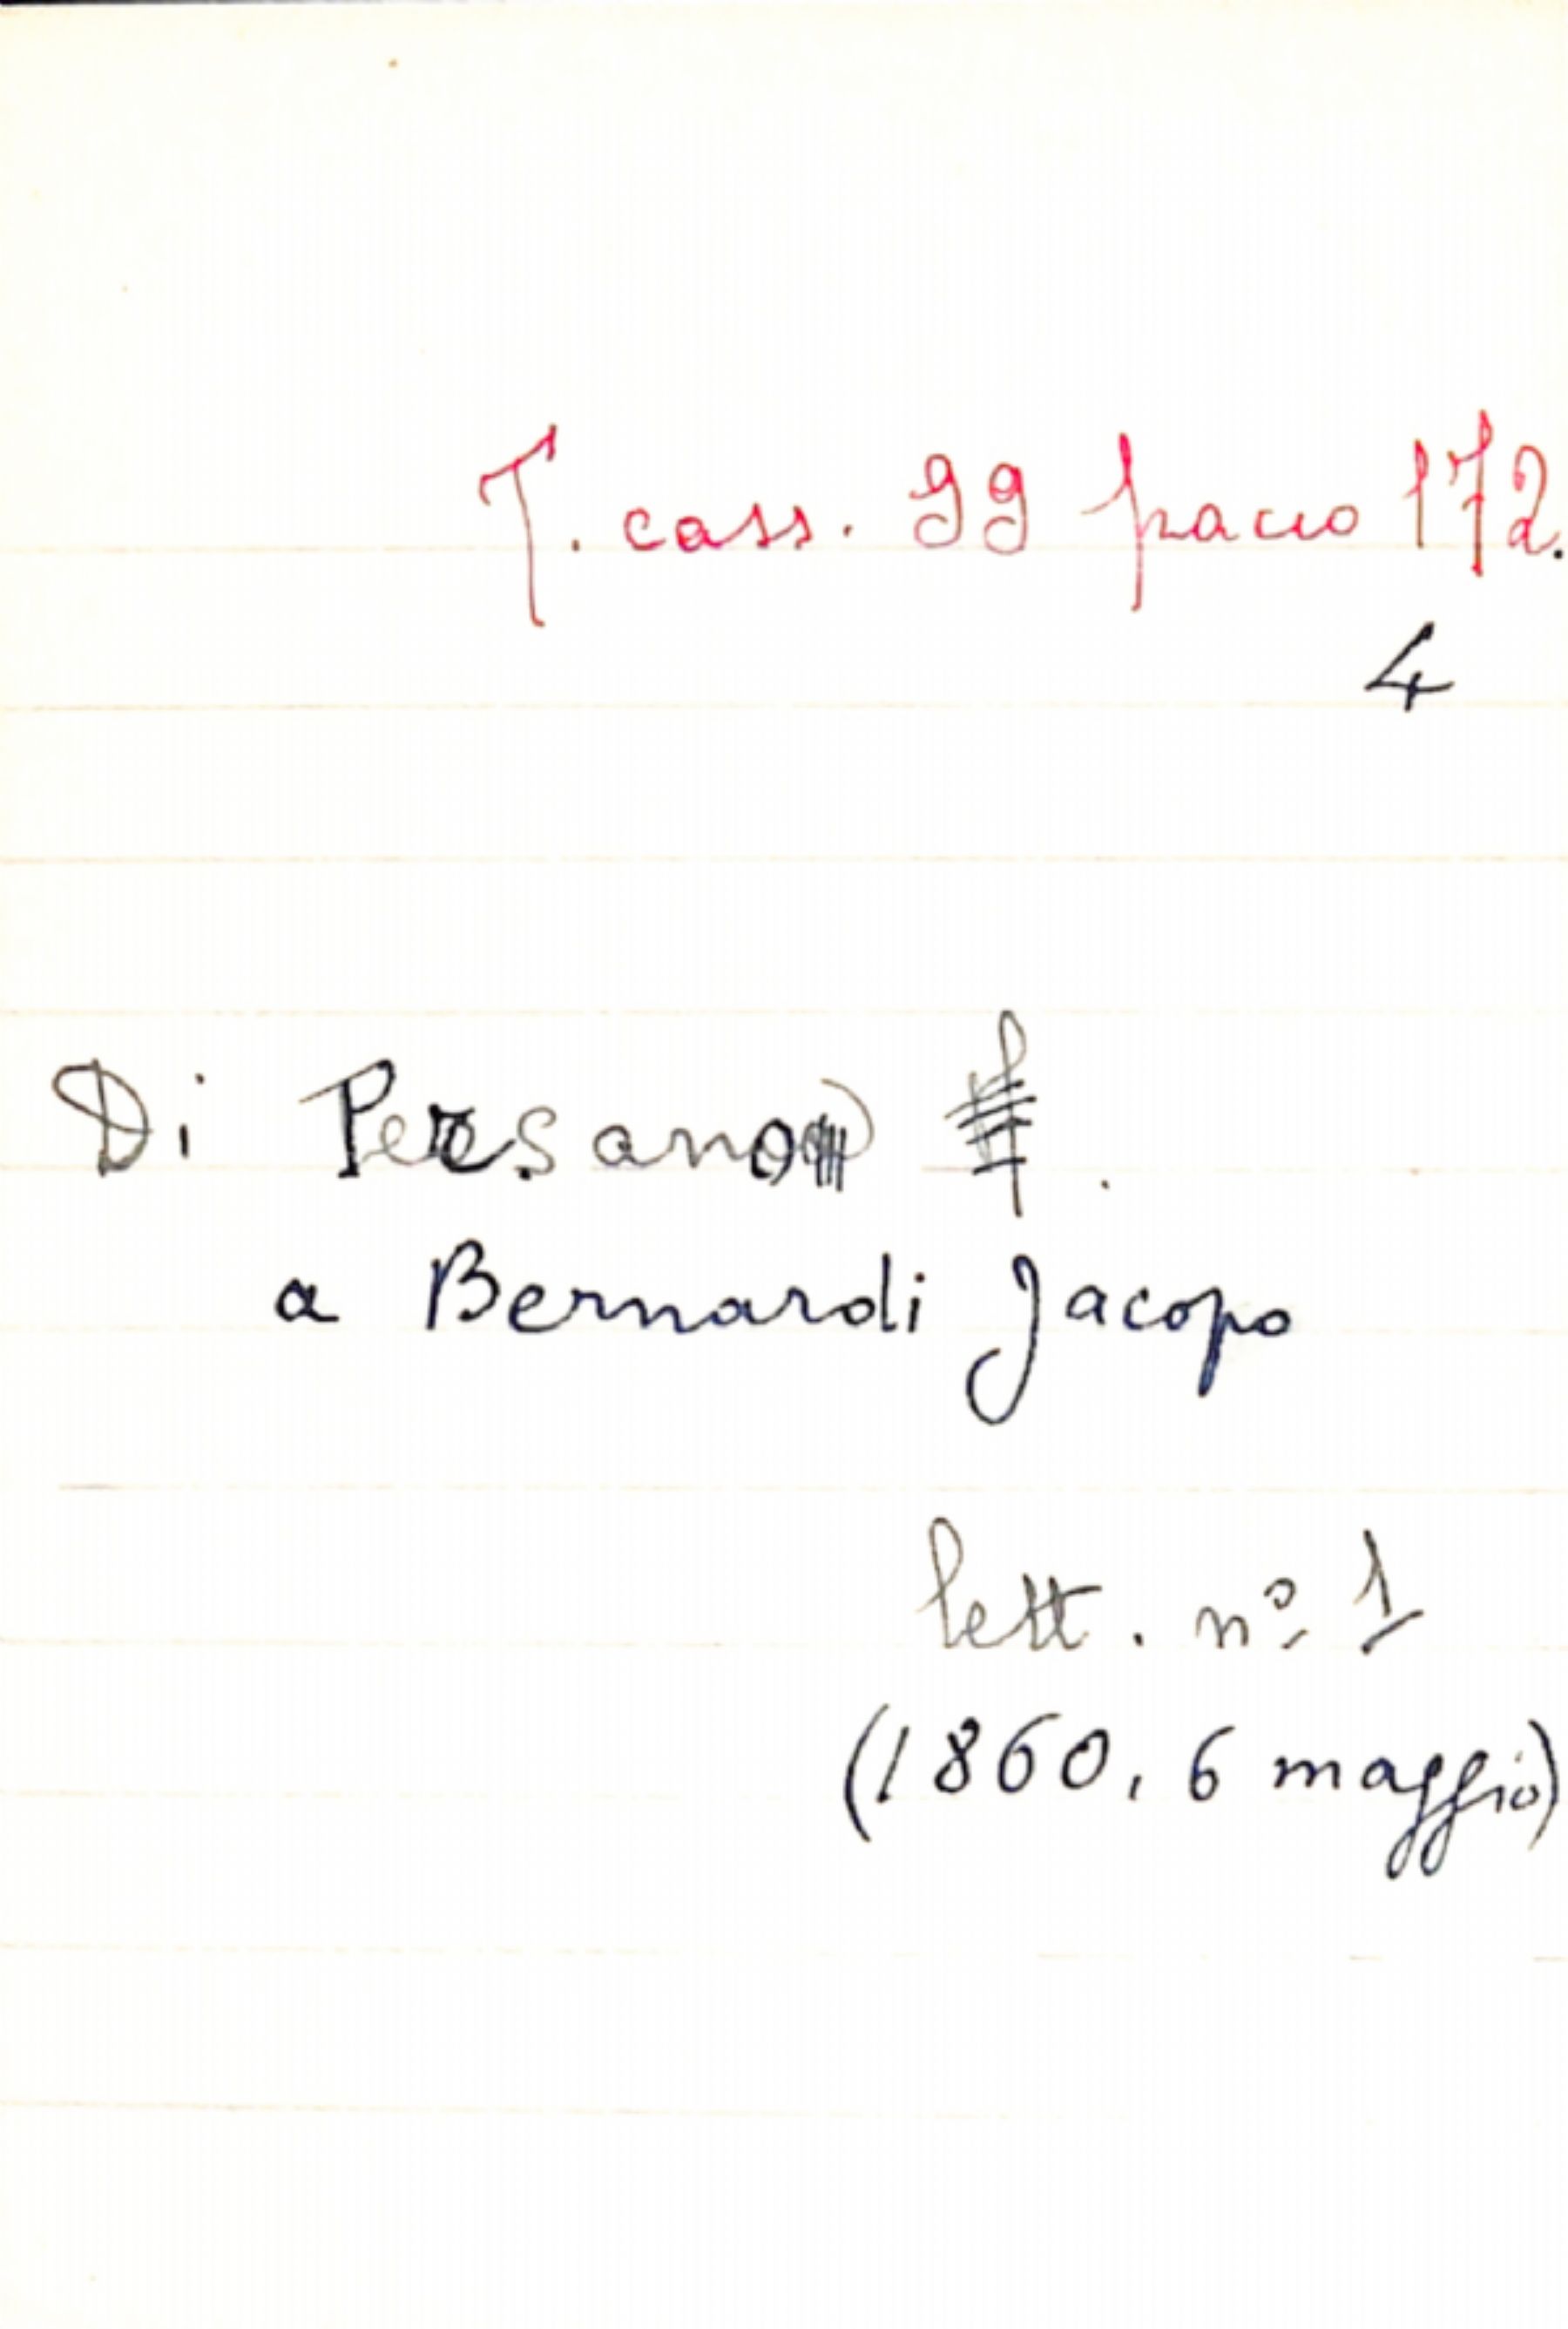 T. cass. 99 pacco 172.
4
Di Persano
a Bernardi Jacopo
lett. nº 1
(1860, 6 maggio)